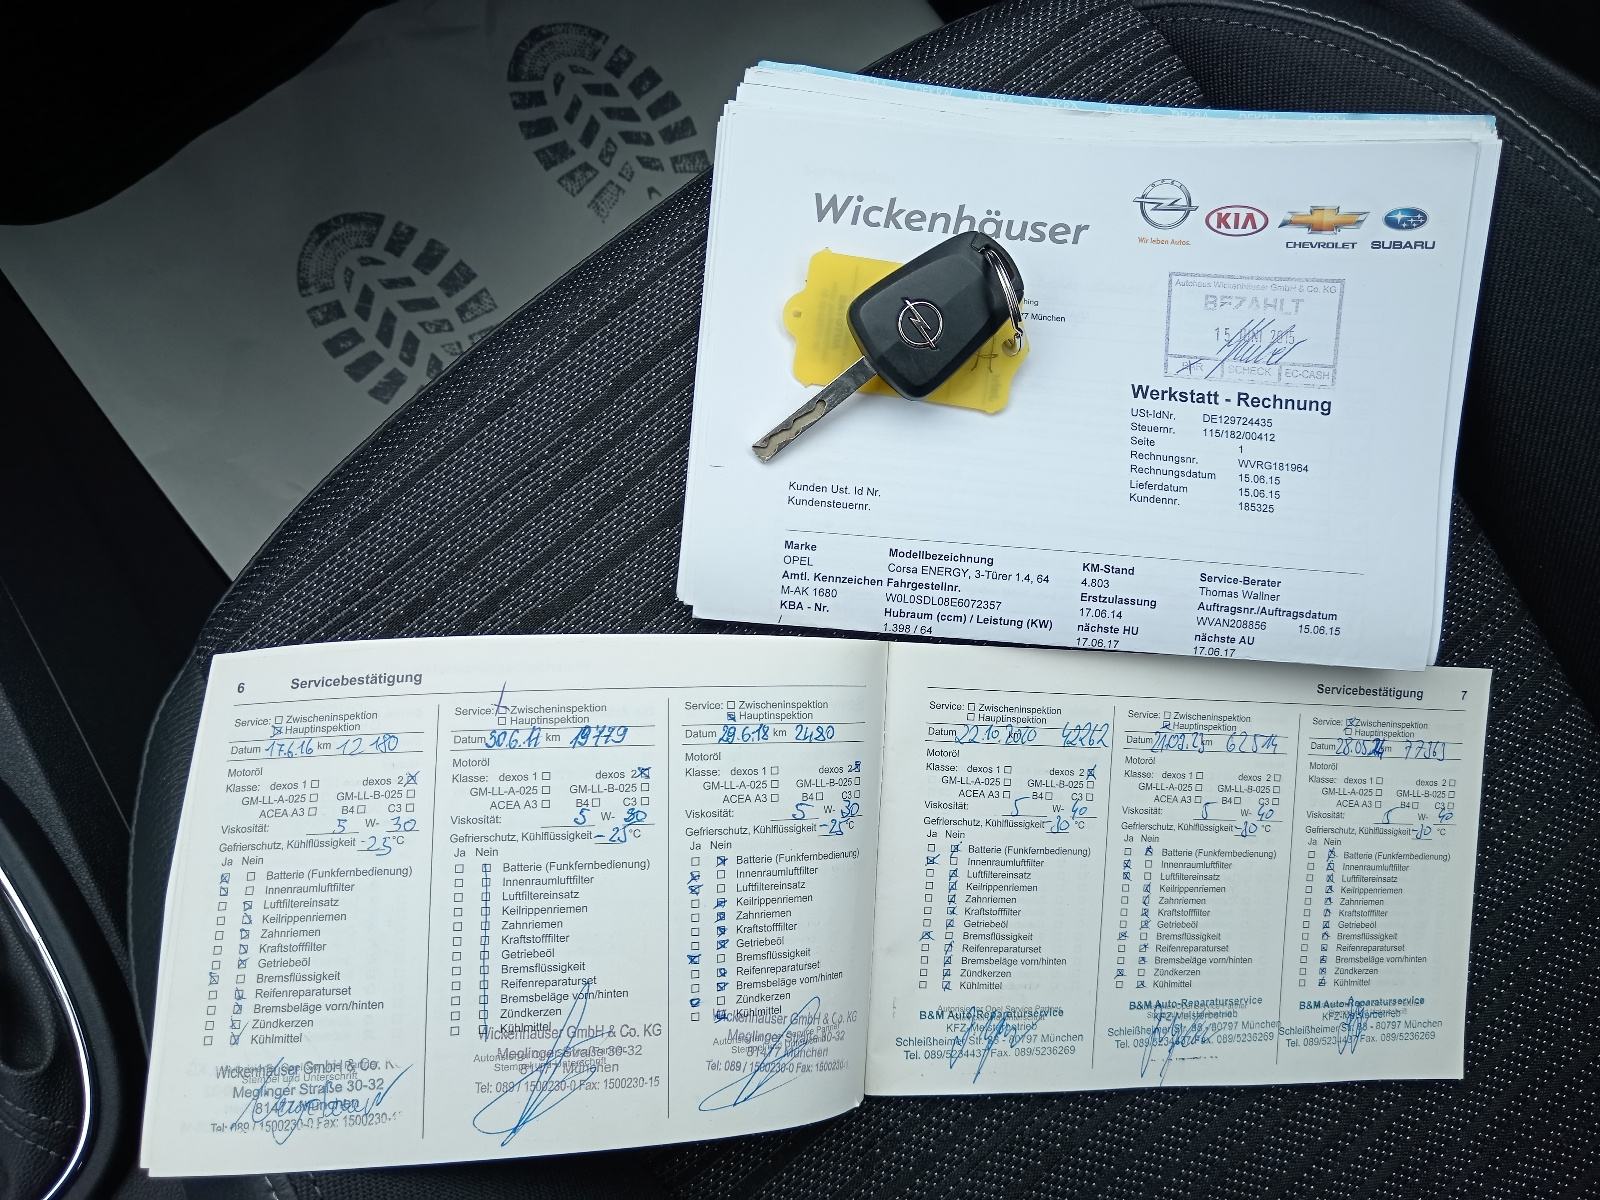 DEKRA DEKRA DEKRA DEKRA
Wickenhäuser
OPEL
Wir leben Autos.
KIA
CHEVROLET
SUBARU
Autohaus Wickenhäuser GmbH & Co. KG
BEZAHLT
15. JUNI 2015
BAR SCHECK EC-CASH
77 München
Werkstatt - Rechnung
USt-IdNr. DE129724435
Steuernr. 115/182/00412
Seite 1
Rechnungsnr. WVRG181964
Rechnungsdatum 15.06.15
Lieferdatum 15.06.15
Kundennr. 185325
Kunden Ust. Id Nr.
Kundensteuernr.
Marke Modellbezeichnung KM-Stand Service-Berater
OPEL Corsa ENERGY, 3-Türer 1.4, 64 4.803 Thomas Wallner
Amtl. Kennzeichen Fahrgestellnr. Erstzulassung Auftragsnr./Auftragsdatum
M-AK 1680 W0L0SDL08E6072357 17.06.14 WVAN208856 15.06.15
KBA - Nr. Hubraum (ccm) / Leistung (KW) nächste HU nächste AU
/ 1.398 / 64 17.06.17 17.06.17
6 Servicebestätigung
Service: Zwischeninspektion
Hauptinspektion
Datum 17.6.16 km 12 180
Motoröl
Klasse: dexos 1 dexos 2
GM-LL-A-025 GM-LL-B-025
ACEA A3 B4 C3
Viskosität: 5 W- 30
Gefrierschutz, Kühlflüssigkeit -25 °C
Ja Nein
Batterie (Funkfernbedienung)
Innenraumluftfilter
Luftfiltereinsatz
Keilrippenriemen
Zahnriemen
Kraftstofffilter
Getriebeöl
Bremsflüssigkeit
Reifenreparaturset
Bremsbeläge vorn/hinten
Zündkerzen
Kühlmittel
Wickenhäuser GmbH & Co.
Stempel und Unterschrift
Meglinger Straße 30-32
81477 München
Tel: 089 / 1500230-0 Fax: 1500230-
Service: Zwischeninspektion
Hauptinspektion
Datum 30.6.17 km 19779
Motoröl
Klasse: dexos 1 dexos 2
GM-LL-A-025 GM-LL-B-025
ACEA A3 B4 C3
Viskosität: 5 W- 30
Gefrierschutz, Kühlflüssigkeit -25 °C
Ja Nein
Batterie (Funkfernbedienung)
Innenraumluftfilter
Luftfiltereinsatz
Keilrippenriemen
Zahnriemen
Kraftstofffilter
Getriebeöl
Bremsflüssigkeit
Reifenreparaturset
Bremsbeläge vorn/hinten
Zündkerzen
Kühlmittel
Wickenhäuser GmbH & Co. KG
Meglinger Straße 30-32
Stempel und Unterschrift
81477 München
Tel: 089 / 1500230-0 Fax: 1500230-15
Service: Zwischeninspektion
Hauptinspektion
Datum 29.6.18 km 2480
Motoröl
Klasse: dexos 1 dexos 2
GM-LL-A-025 GM-LL-B-025
ACEA A3 B4 C3
Viskosität: 5 W- 30
Gefrierschutz, Kühlflüssigkeit -25 °C
Ja Nein
Batterie (Funkfernbedienung)
Innenraumluftfilter
Luftfiltereinsatz
Keilrippenriemen
Zahnriemen
Kraftstofffilter
Getriebeöl
Bremsflüssigkeit
Reifenreparaturset
Bremsbeläge vorn/hinten
Zündkerzen
Kühlmittel
Wickenhäuser GmbH & Co. KG
Meglinger Straße 30-32
81477 München
Tel: 089 / 1500230-0 Fax: 1500230-
Servicebestätigung 7
Service: Zwischeninspektion
Hauptinspektion
Datum 22.10.2020 42262
Motoröl
Klasse: dexos 1 dexos 2
GM-LL-A-025 GM-LL-B-025
ACEA A3 B4 C3
Viskosität: 5 W- 40
Gefrierschutz, Kühlflüssigkeit -30 °C
Ja Nein
Batterie (Funkfernbedienung)
Innenraumluftfilter
Luftfiltereinsatz
Keilrippenriemen
Zahnriemen
Kraftstofffilter
Getriebeöl
Bremsflüssigkeit
Reifenreparaturset
Bremsbeläge vorn/hinten
Zündkerzen
Kühlmittel
Autorisierter Opel Service Partner
B&M Auto-Reparaturservice
KFZ-Meisterbetrieb
Schleißheimer Str. 88 - 80797 München
Tel. 089/5234437 Fax. 089/5236269
Service: Zwischeninspektion
Hauptinspektion
Datum 21.09.23 km 62514
Motoröl
Klasse: dexos 1 dexos 2
GM-LL-A-025 GM-LL-B-025
ACEA A3 B4 C3
Viskosität: 5 W- 40
Gefrierschutz, Kühlflüssigkeit -30 °C
Ja Nein
Batterie (Funkfernbedienung)
Innenraumluftfilter
Luftfiltereinsatz
Keilrippenriemen
Zahnriemen
Kraftstofffilter
Getriebeöl
Bremsflüssigkeit
Reifenreparaturset
Bremsbeläge vorn/hinten
Zündkerzen
Kühlmittel
B&M Auto-Reparaturservice
KFZ-Meisterbetrieb
Schleißheimer Str. 88 - 80797 München
Tel. 089/5234437 Fax. 089/5236269
Service: Zwischeninspektion
Hauptinspektion
Datum 28.05.24 km
Motoröl
Klasse: dexos 1 dexos 2
GM-LL-A-025 GM-LL-B-025
ACEA A3 B4 C3
Viskosität: 5 W- 40
Gefrierschutz, Kühlflüssigkeit -30 °C
Ja Nein
Batterie (Funkfernbedienung)
Innenraumluftfilter
Luftfiltereinsatz
Keilrippenriemen
Zahnriemen
Kraftstofffilter
Getriebeöl
Bremsflüssigkeit
Reifenreparaturset
Bremsbeläge vorn/hinten
Zündkerzen
Kühlmittel
B&M Auto-Reparaturservice
KFZ-Meisterbetrieb
Schleißheimer Str. 88 - 80797 München
Tel. 089/5234437 Fax. 089/5236269